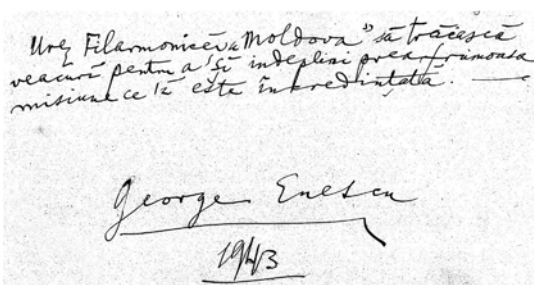 Urez Filarmonicei „Moldova” să trăiască
veacuri pentru a'și indeplini prea frumoasa
misiune ce'i este încredințată. —
George Enescu
1943